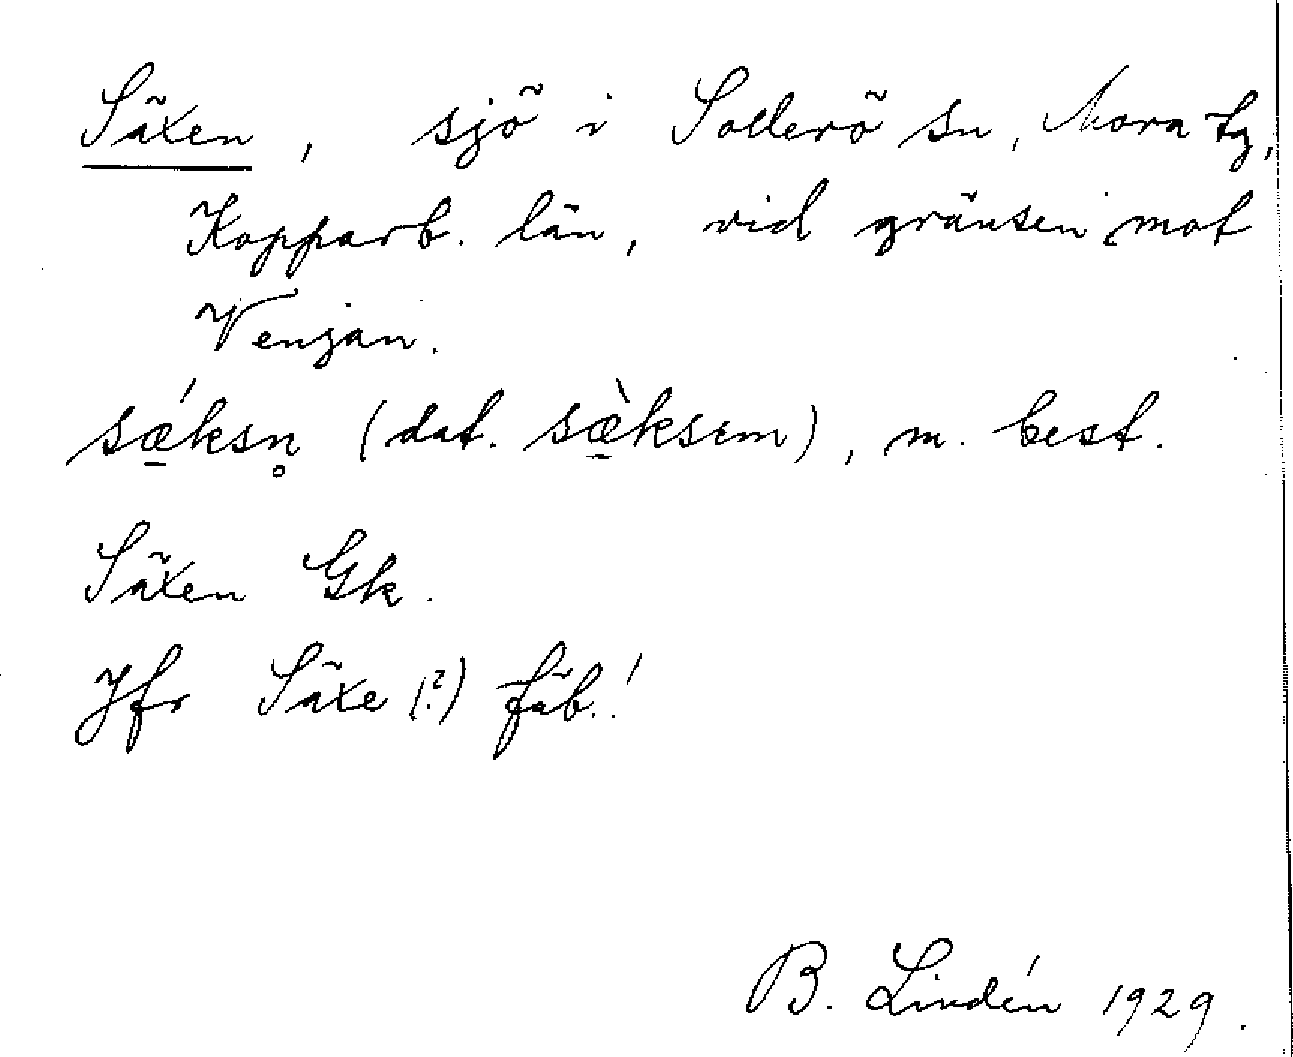 Säxen, sjö i Sollerö sn, Mora tg,
Kopparb. län, vid gränsen mot
Venjan.
sǽ̠ksn̥ (dat. sæ̠̀ksem), m. best.
Säxen Gk.
Jfr Säxe (?) fäb.!
B. Lindén 1929.